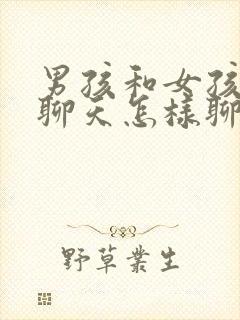 男孩和女孩
聊天怎样聊
野草丛生